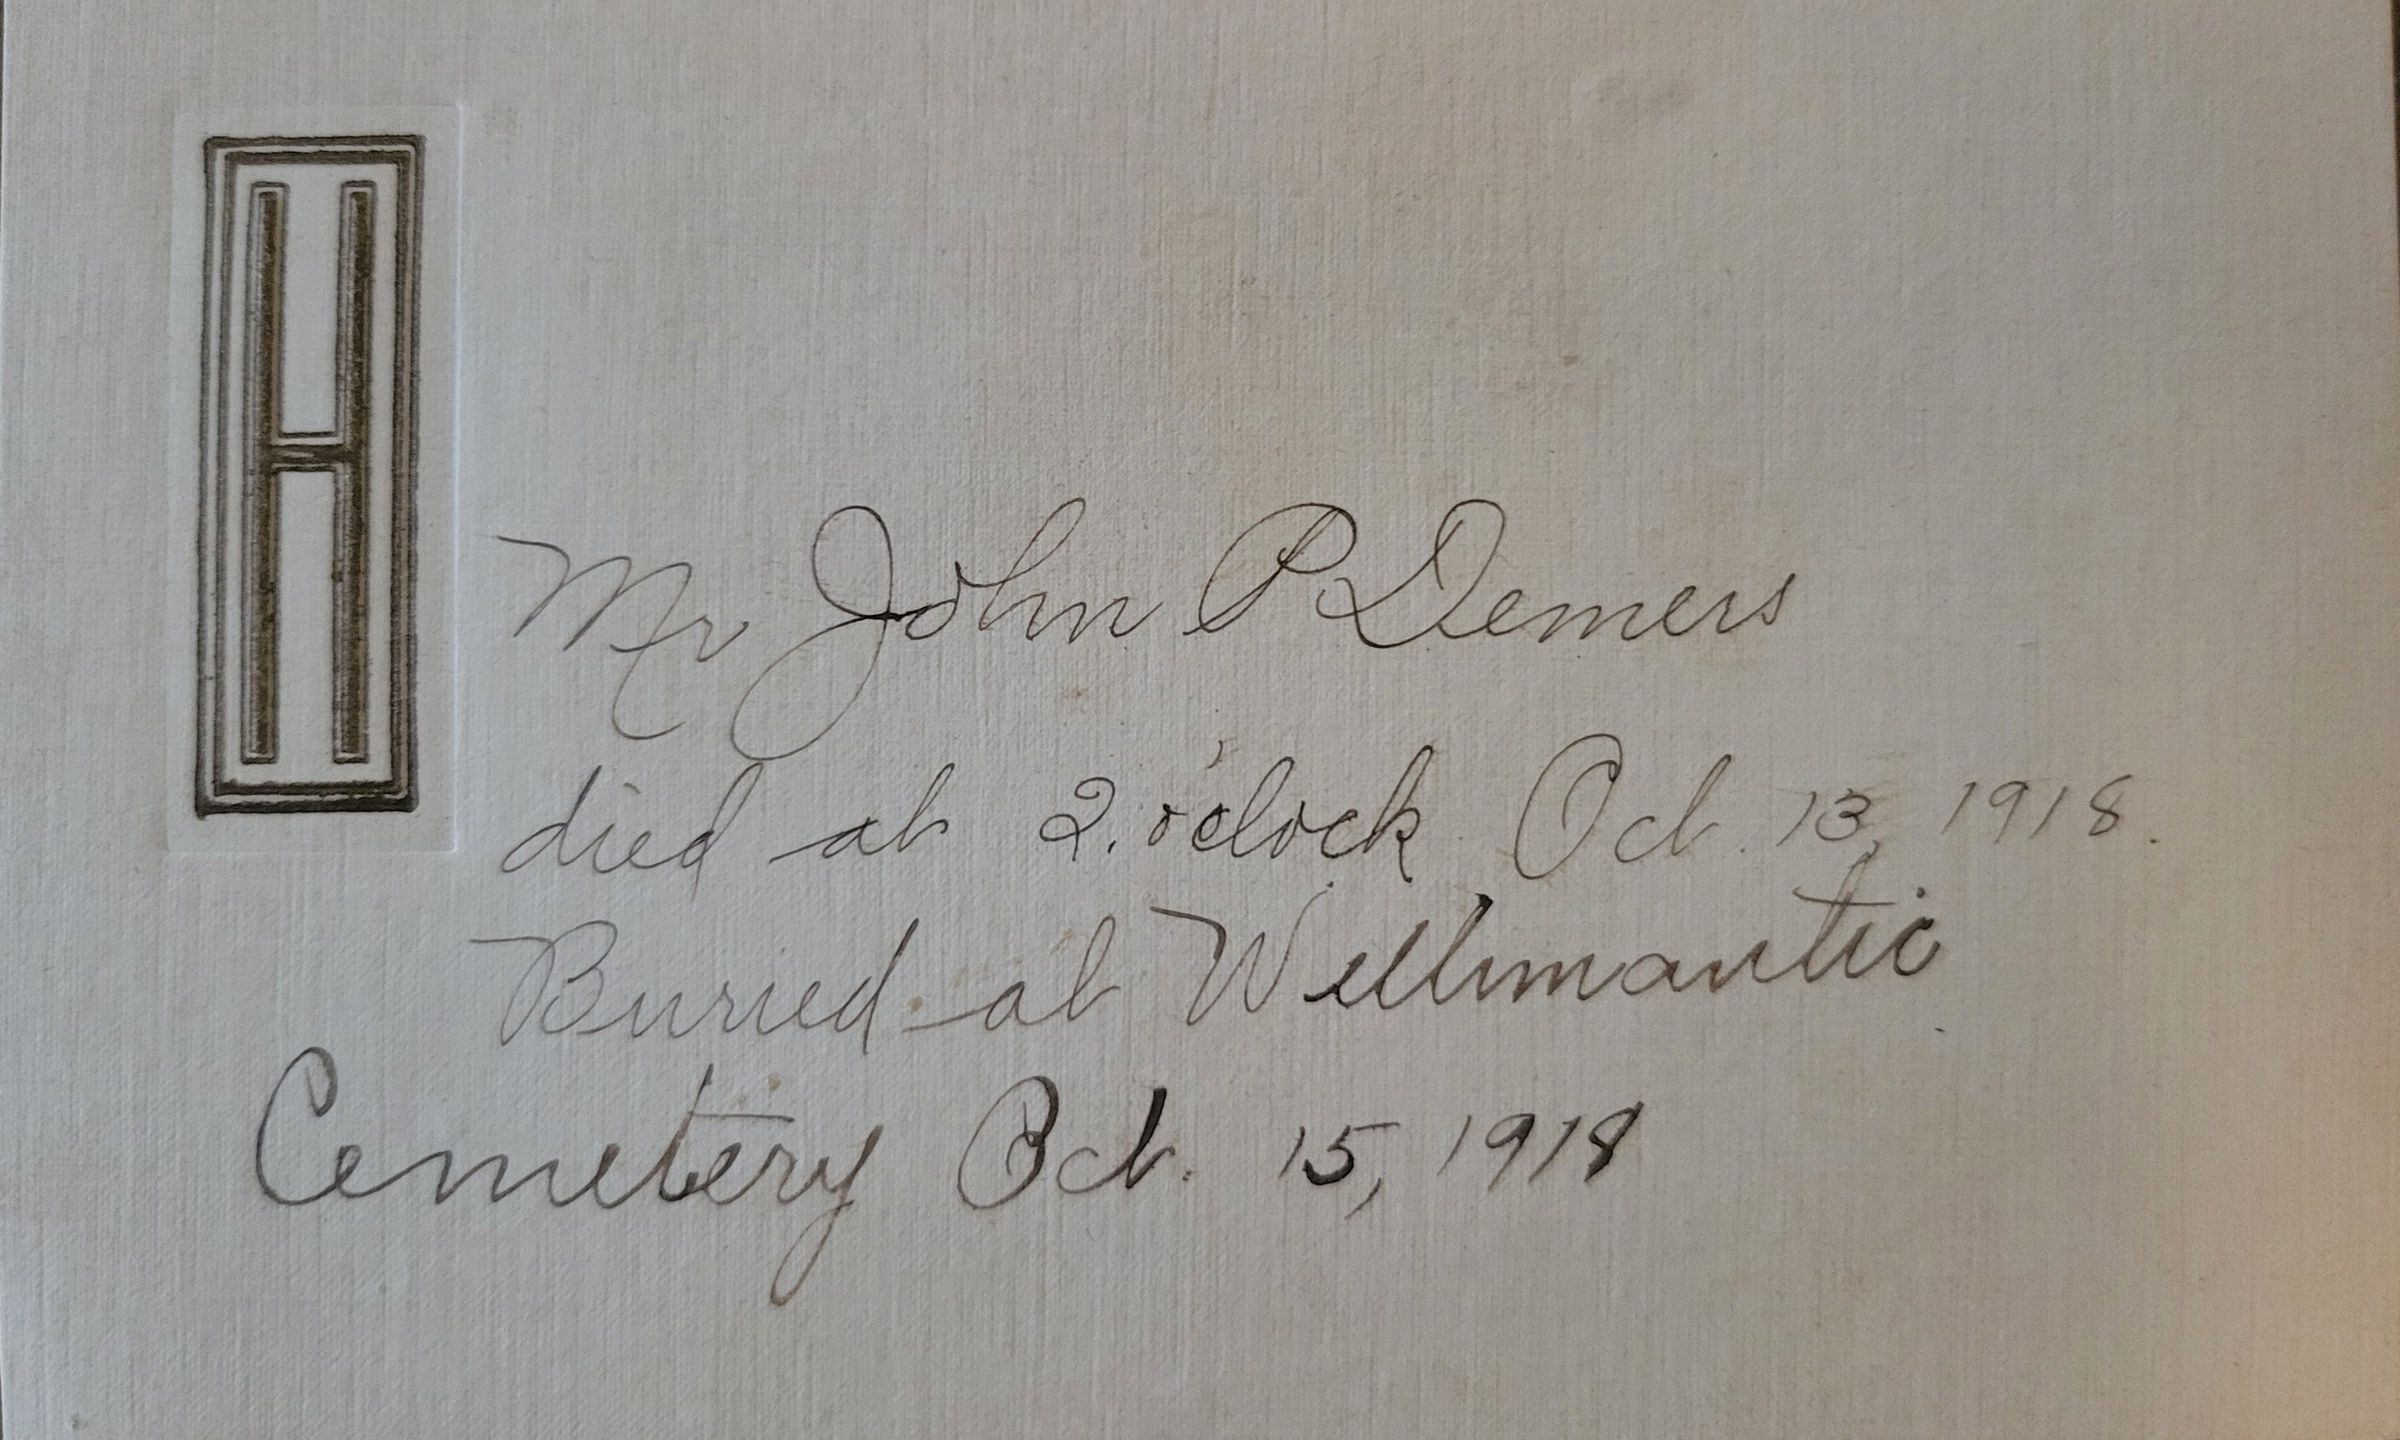 H
Mr John P Demers
died at 2. o'clock Oct. 13, 1918.
Buried at Willimantic
Cemetery Oct. 15, 1918